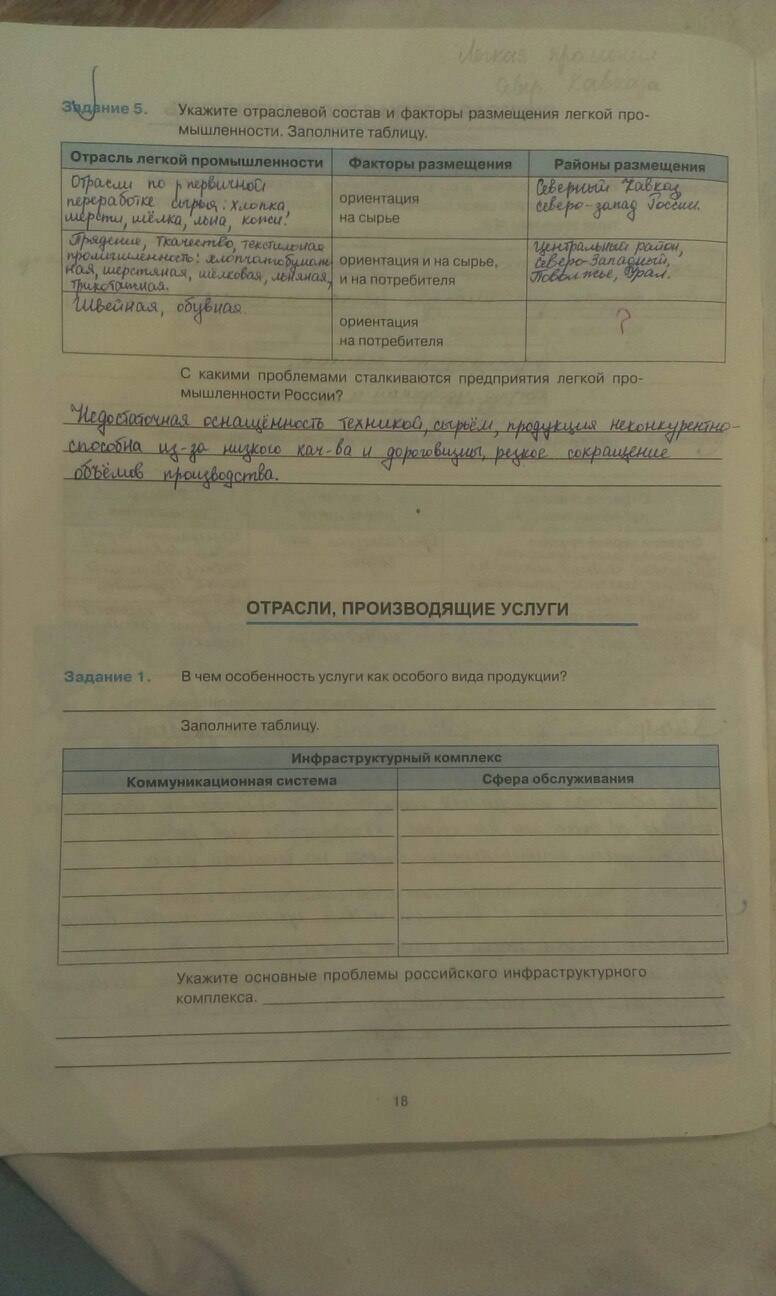 Легкая промышл
Севр Кавказа
Задание 5. Укажите отраслевой состав и факторы размещения легкой про-
мышленности. Заполните таблицу.
Отрасль легкой промышленности Факторы размещения Районы размещения
Отрасли по первичной
переработке сырья: хлопка,
шерсти, шёлка, льна, кожи.
ориентация
на сырье
Северный Кавказ,
северо-запад России.
Прядение, ткачество, текстильная
промышленность: хлопчатобумаж-
ная, шерстяная, шёлковая, льняная,
трикотажная.
ориентация и на сырье,
и на потребителя
Центральный район,
Северо-Западный,
Поволжье, Урал.
Швейная, обувная
ориентация
на потребителя
?
С какими проблемами сталкиваются предприятия легкой про-
мышленности России?
Недостаточная оснащённость техникой, сырьём, продукция неконкурентно-
способна из-за низкого кач-ва и дороговизны, резкое сокращение
объёмов производства.
ОТРАСЛИ, ПРОИЗВОДЯЩИЕ УСЛУГИ
Задание 1. В чем особенность услуги как особого вида продукции?
Заполните таблицу.
Инфраструктурный комплекс
Коммуникационная система Сфера обслуживания
Укажите основные проблемы российского инфраструктурного
комплекса.
18